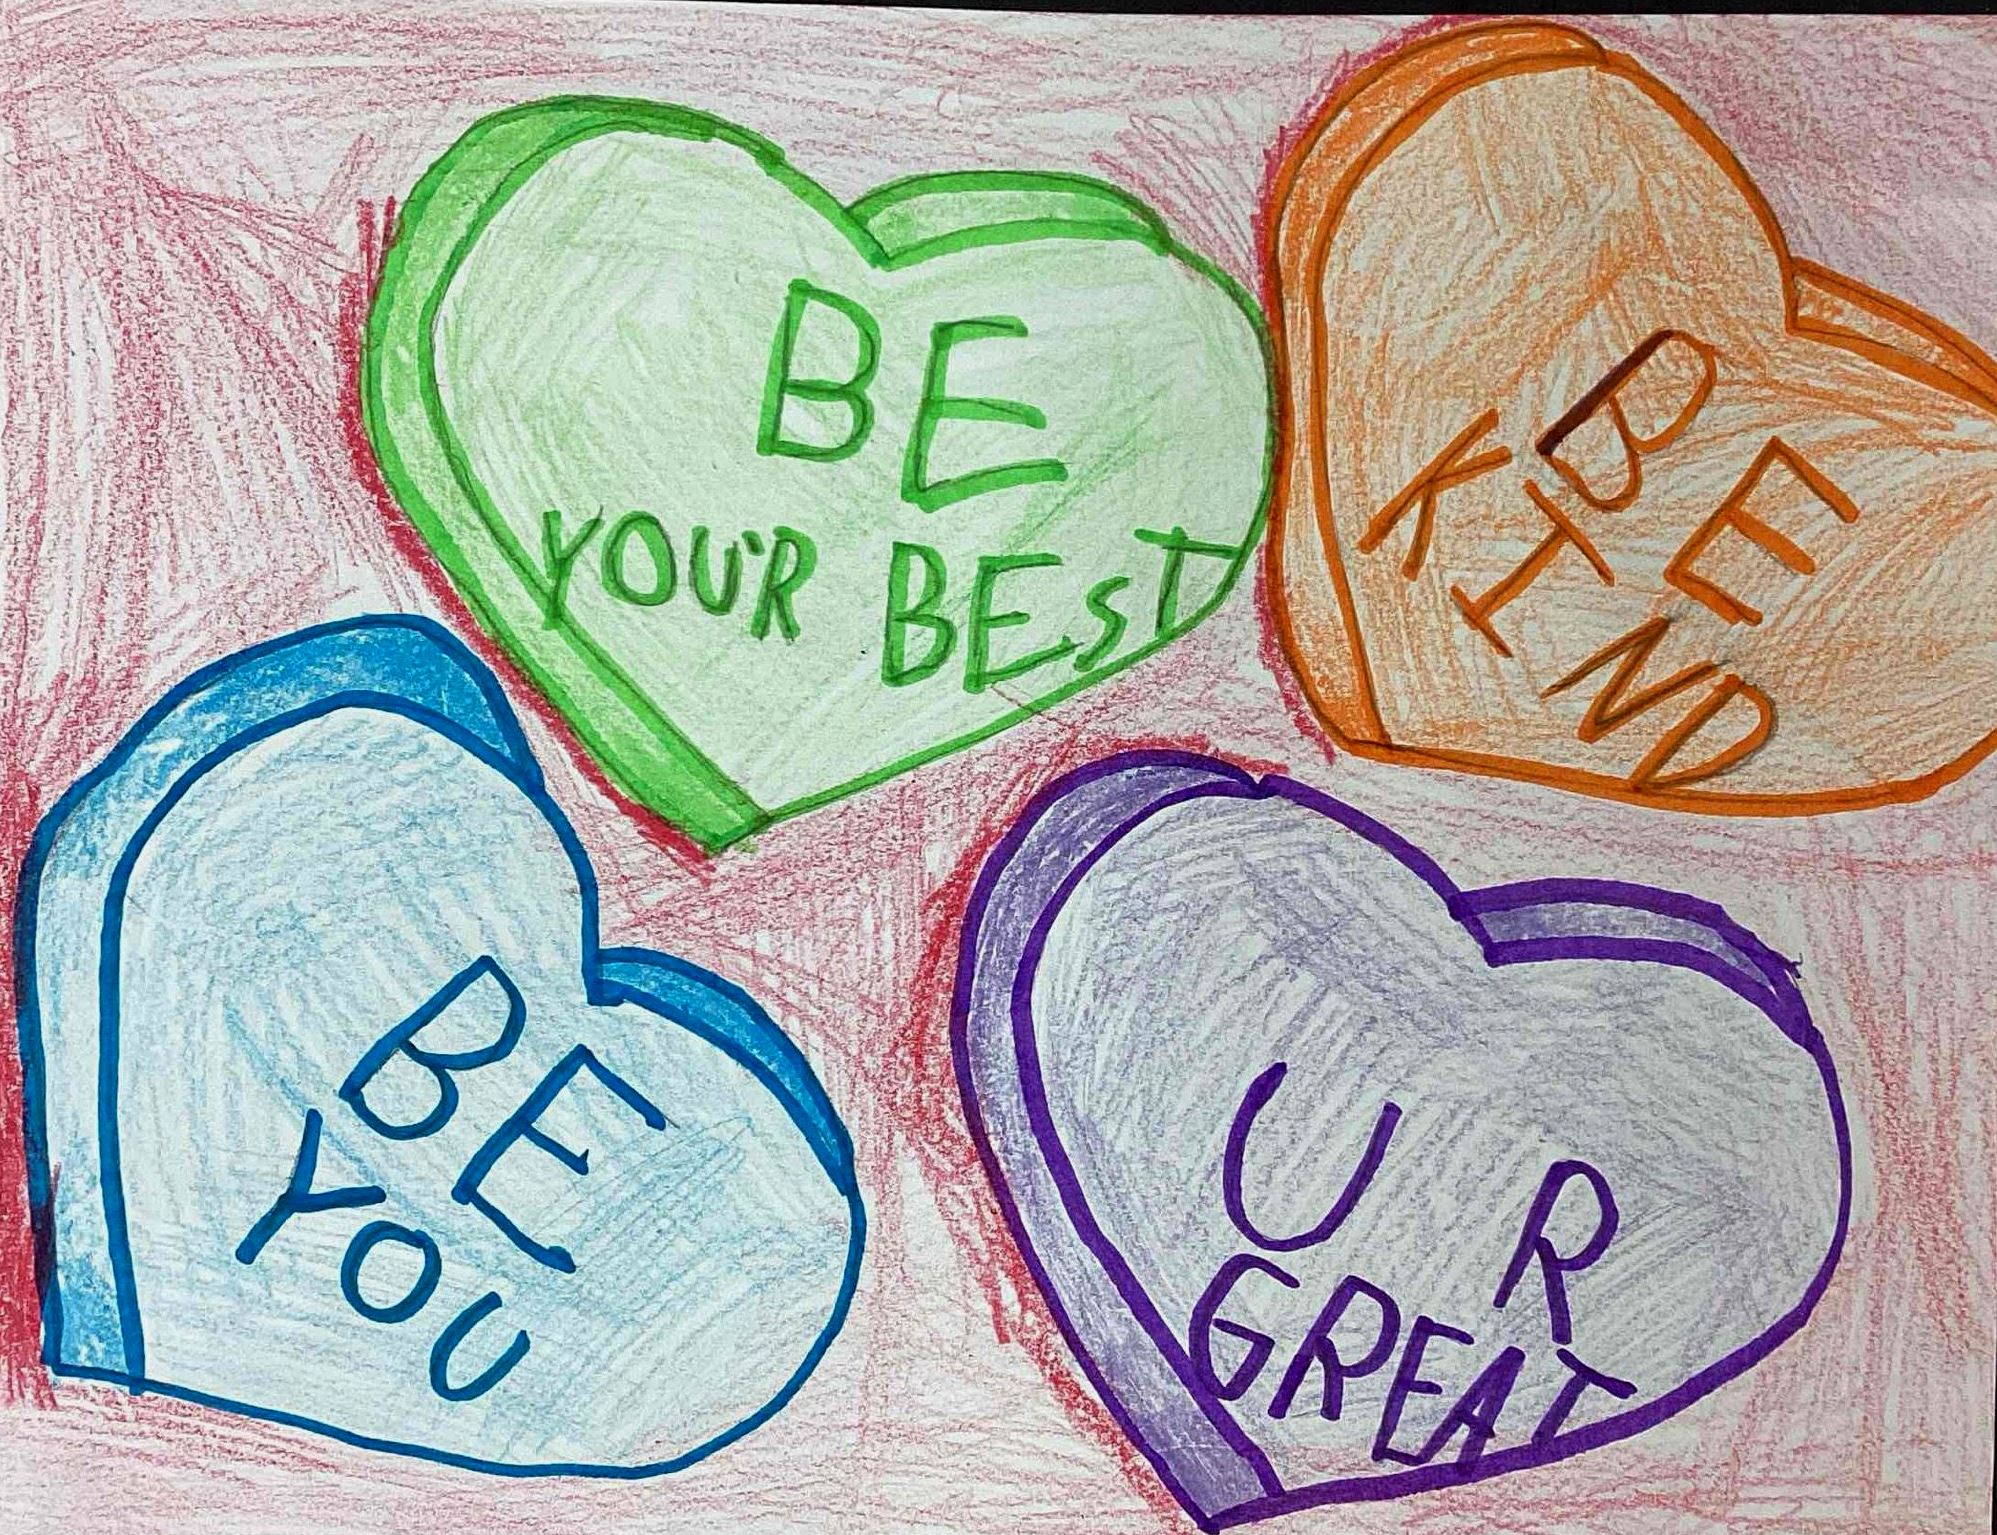 BE
YOU'R BEST
BE
KIND
BE
YOU
U R
GREAT